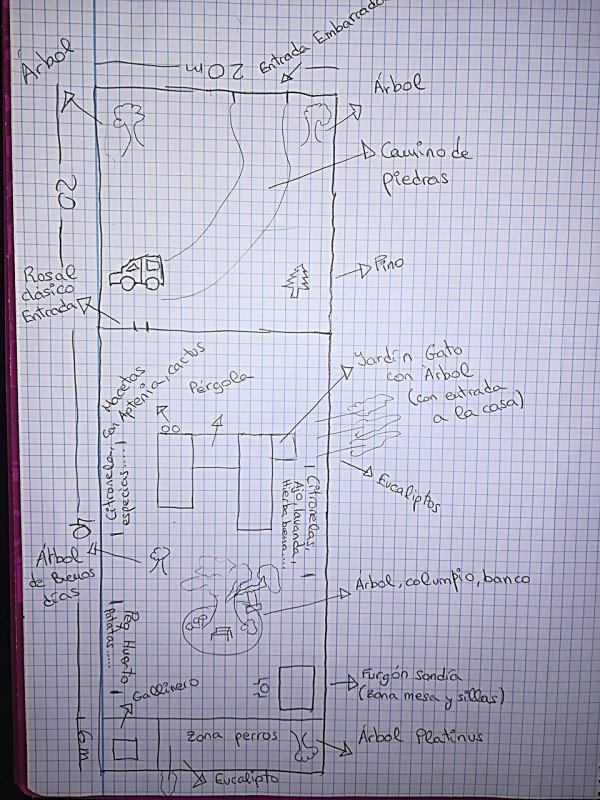 Árbol
20m
Entrada Embarrado
Árbol
Camino de
piedras
20
Pino
Rosal
clásico
Entrada
Jardín Gato
con Árbol
(con entrada
a la casa)
Citronela, con Macetas
Aptenia, cactus
especias.....
Pérgola
Citronelas,
Ajo, lavanda,
Hierba buena....
Eucaliptos
40
Árbol
de Buenos
días
Árbol, columpio, banco
Peq Huerto
Patatas.....
Gallinero
Furgón Sandía
(zona mesa y sillas)
6m
Zona perros
Árbol Platinus
Eucalipto